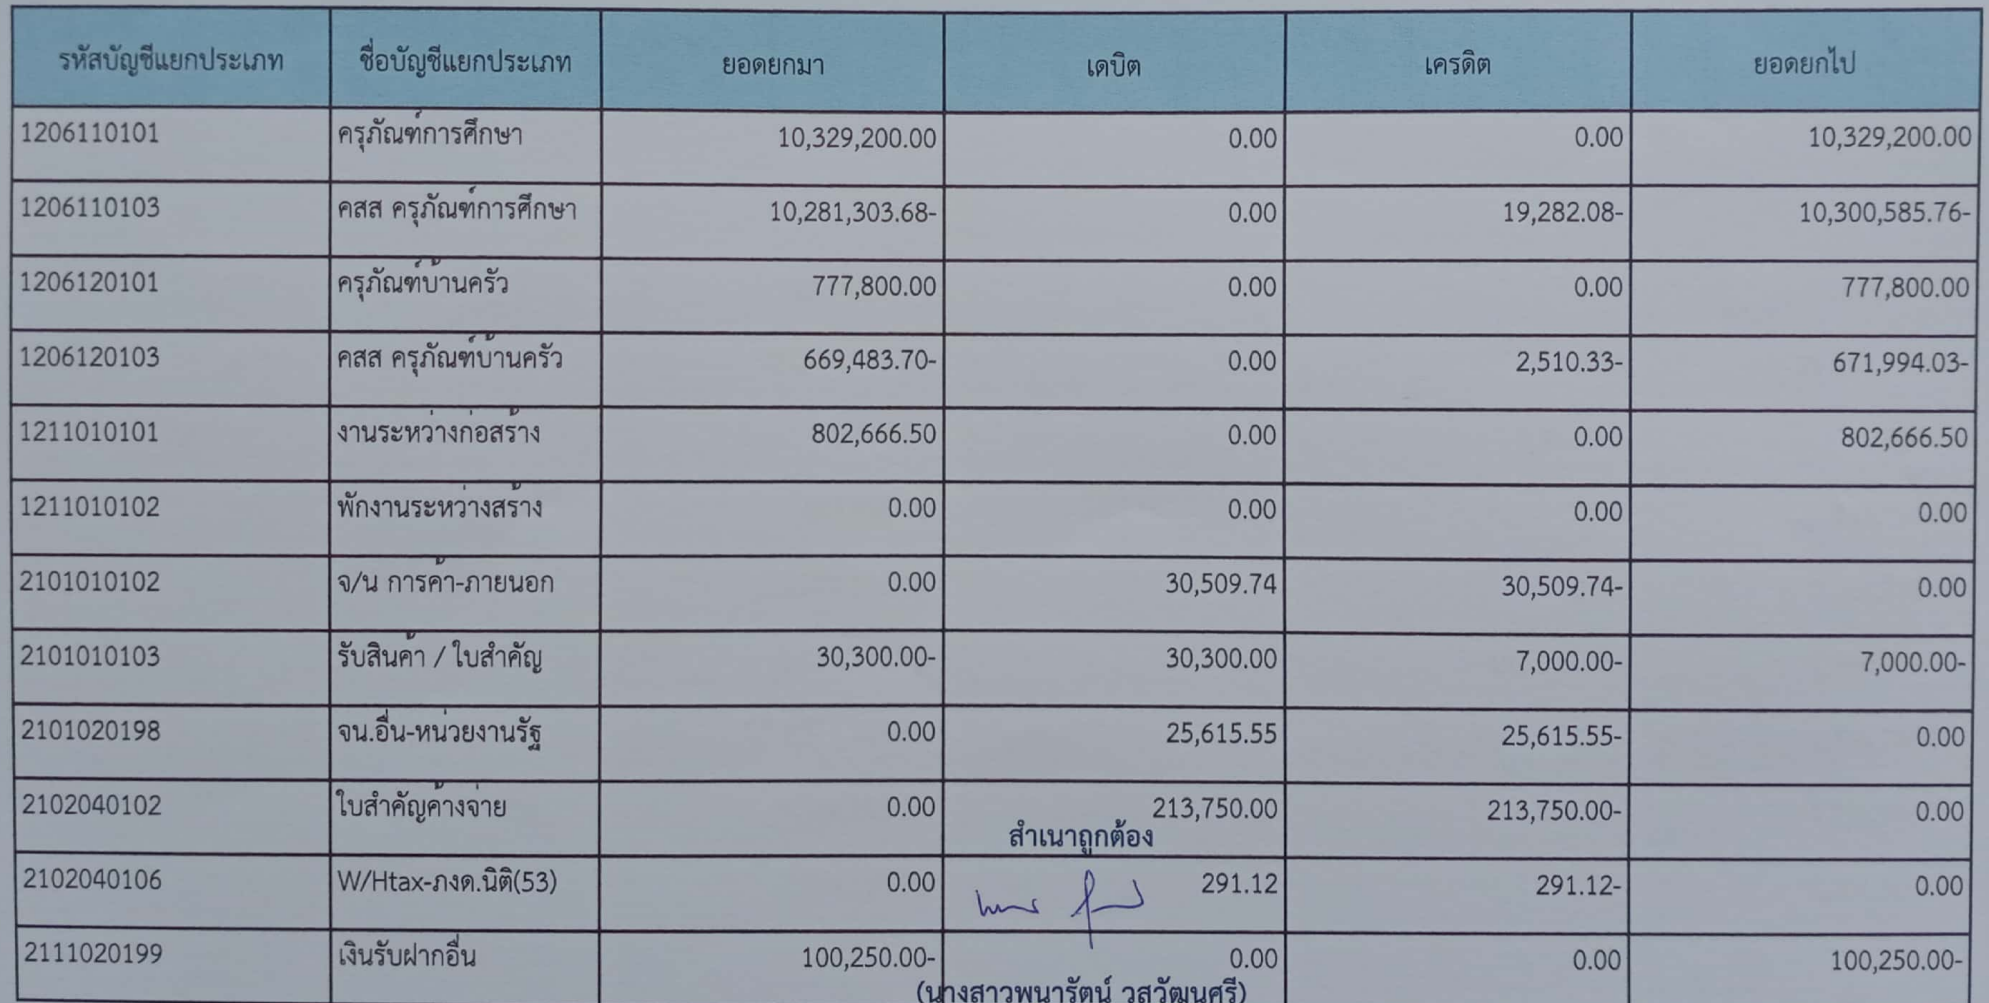 รหัสบัญชีแยกประเภท ชื่อบัญชีแยกประเภท ยอดยกมา เดบิต เครดิต ยอดยกไป
1206110101 ครุภัณฑ์การศึกษา 10,329,200.00 0.00 0.00 10,329,200.00
1206110103 คสส ครุภัณฑ์การศึกษา 10,281,303.68- 0.00 19,282.08- 10,300,585.76-
1206120101 ครุภัณฑ์บ้านครัว 777,800.00 0.00 0.00 777,800.00
1206120103 คสส ครุภัณฑ์บ้านครัว 669,483.70- 0.00 2,510.33- 671,994.03-
1211010101 งานระหว่างก่อสร้าง 802,666.50 0.00 0.00 802,666.50
1211010102 พักงานระหว่างสร้าง 0.00 0.00 0.00 0.00
2101010102 จ/น การค้า-ภายนอก 0.00 30,509.74 30,509.74- 0.00
2101010103 รับสินค้า / ใบสำคัญ 30,300.00- 30,300.00 7,000.00- 7,000.00-
2101020198 จน.อื่น-หน่วยงานรัฐ 0.00 25,615.55 25,615.55- 0.00
2102040102 ใบสำคัญค้างจ่าย 0.00 213,750.00 213,750.00- 0.00
สำเนาถูกต้อง
2102040106 W/Htax-ภงด.นิติ(53) 0.00 291.12 291.12- 0.00
2111020199 เงินรับฝากอื่น 100,250.00- 0.00 0.00 100,250.00-
(นางสาวพนารัตน์ วสวัฒนศรี)